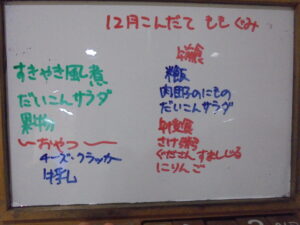 12月こんだて ももぐみ
すきやき風煮
だいこんサラダ
果物
〜おやつ〜
チーズ・クラッカー
牛乳
米飯
肉団子のにもの
だいこんサラダ
さけ
ぐだくさんすましじる
りんご